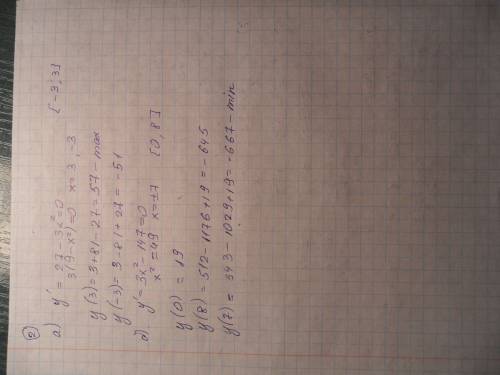 ②
а) y' = 27 - 3x² = 0 [-3; 3]
3(9 - x²) = 0 x = 3; -3
y(3) = 3 + 81 - 27 = 57 - max
y(-3) = 3 - 81 + 27 = -51
б) y' = 3x² - 147 = 0 [0, 8]
x² = 49 x = ±7
y(0) = 19
y(8) = 512 - 1176 + 19 = -645
y(7) = 343 - 1029 + 19 = -667 - min